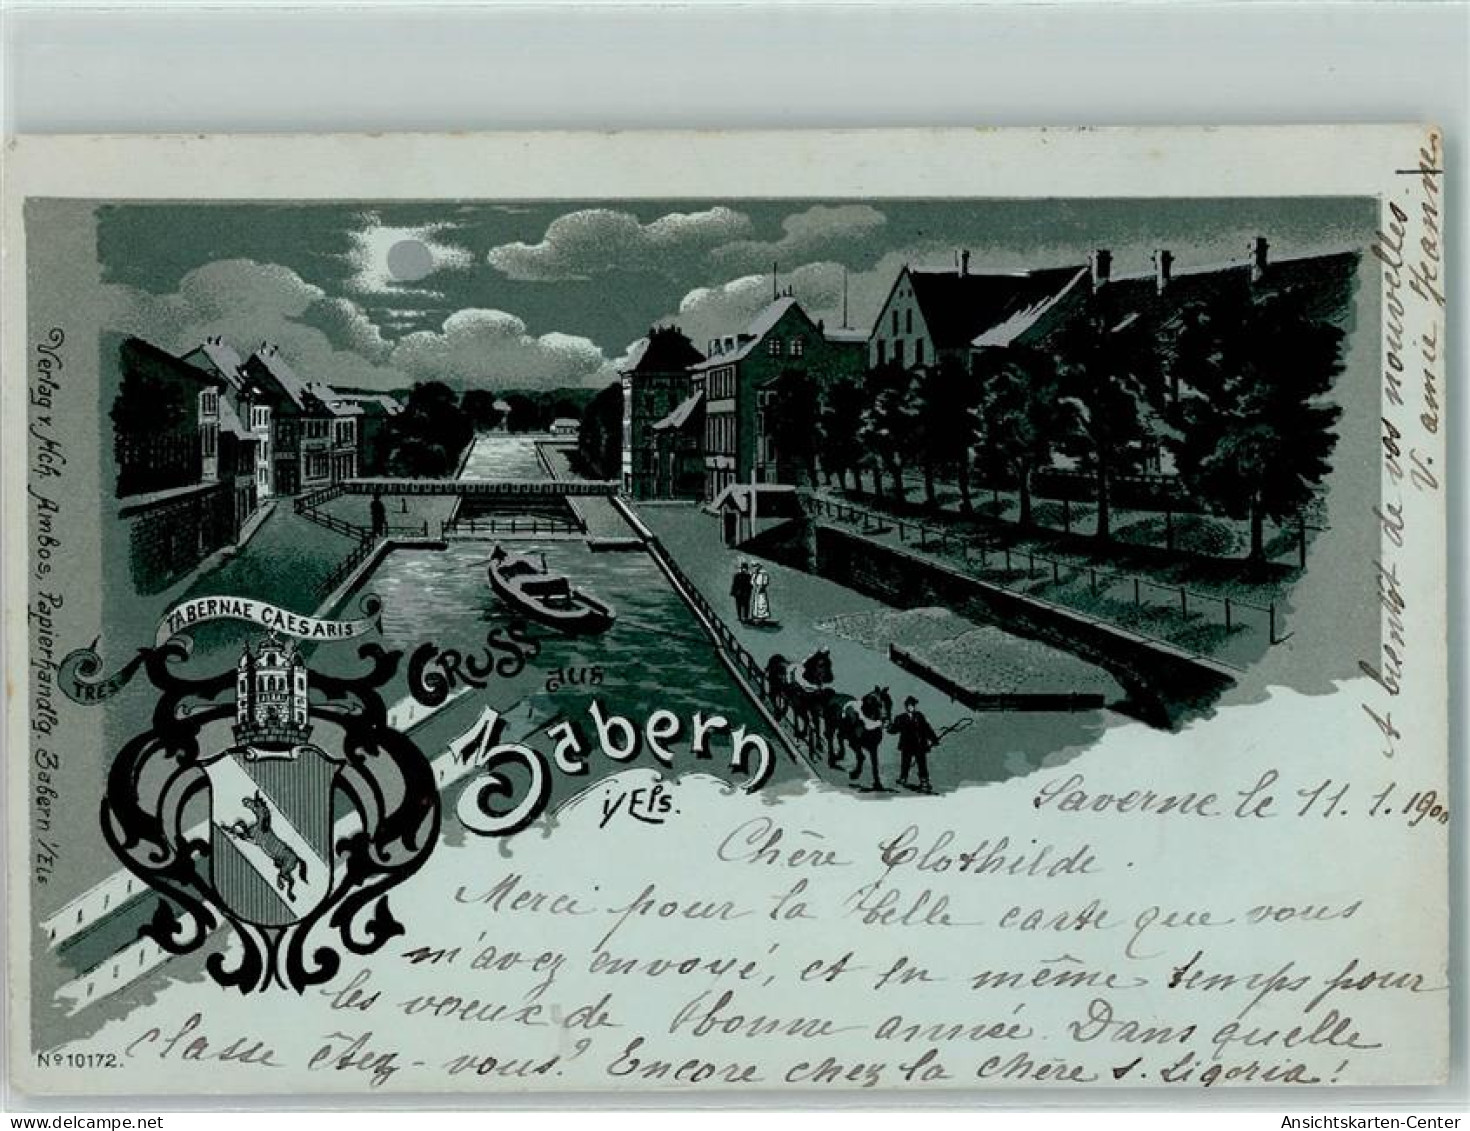 Verlag v. Hch. Ambos, Papierhandlg. Zabern i/Els
TRES TABERNAE CAESARIS
GRUSS
aus
Zabern
i/Els.
Saverne le 11. 1. 1900
Chère Clothilde.
Merci pour la belle carte que vous
m'avez envoyé, et en même temps pour
les voeux de bonne année. Dans quelle
classe êtez-vous? Encore chez la chère s. Ligoria!
A bientôt de vos nouvelles
V. amie Jeanne
No 10172.
Ansichtskarten-Center